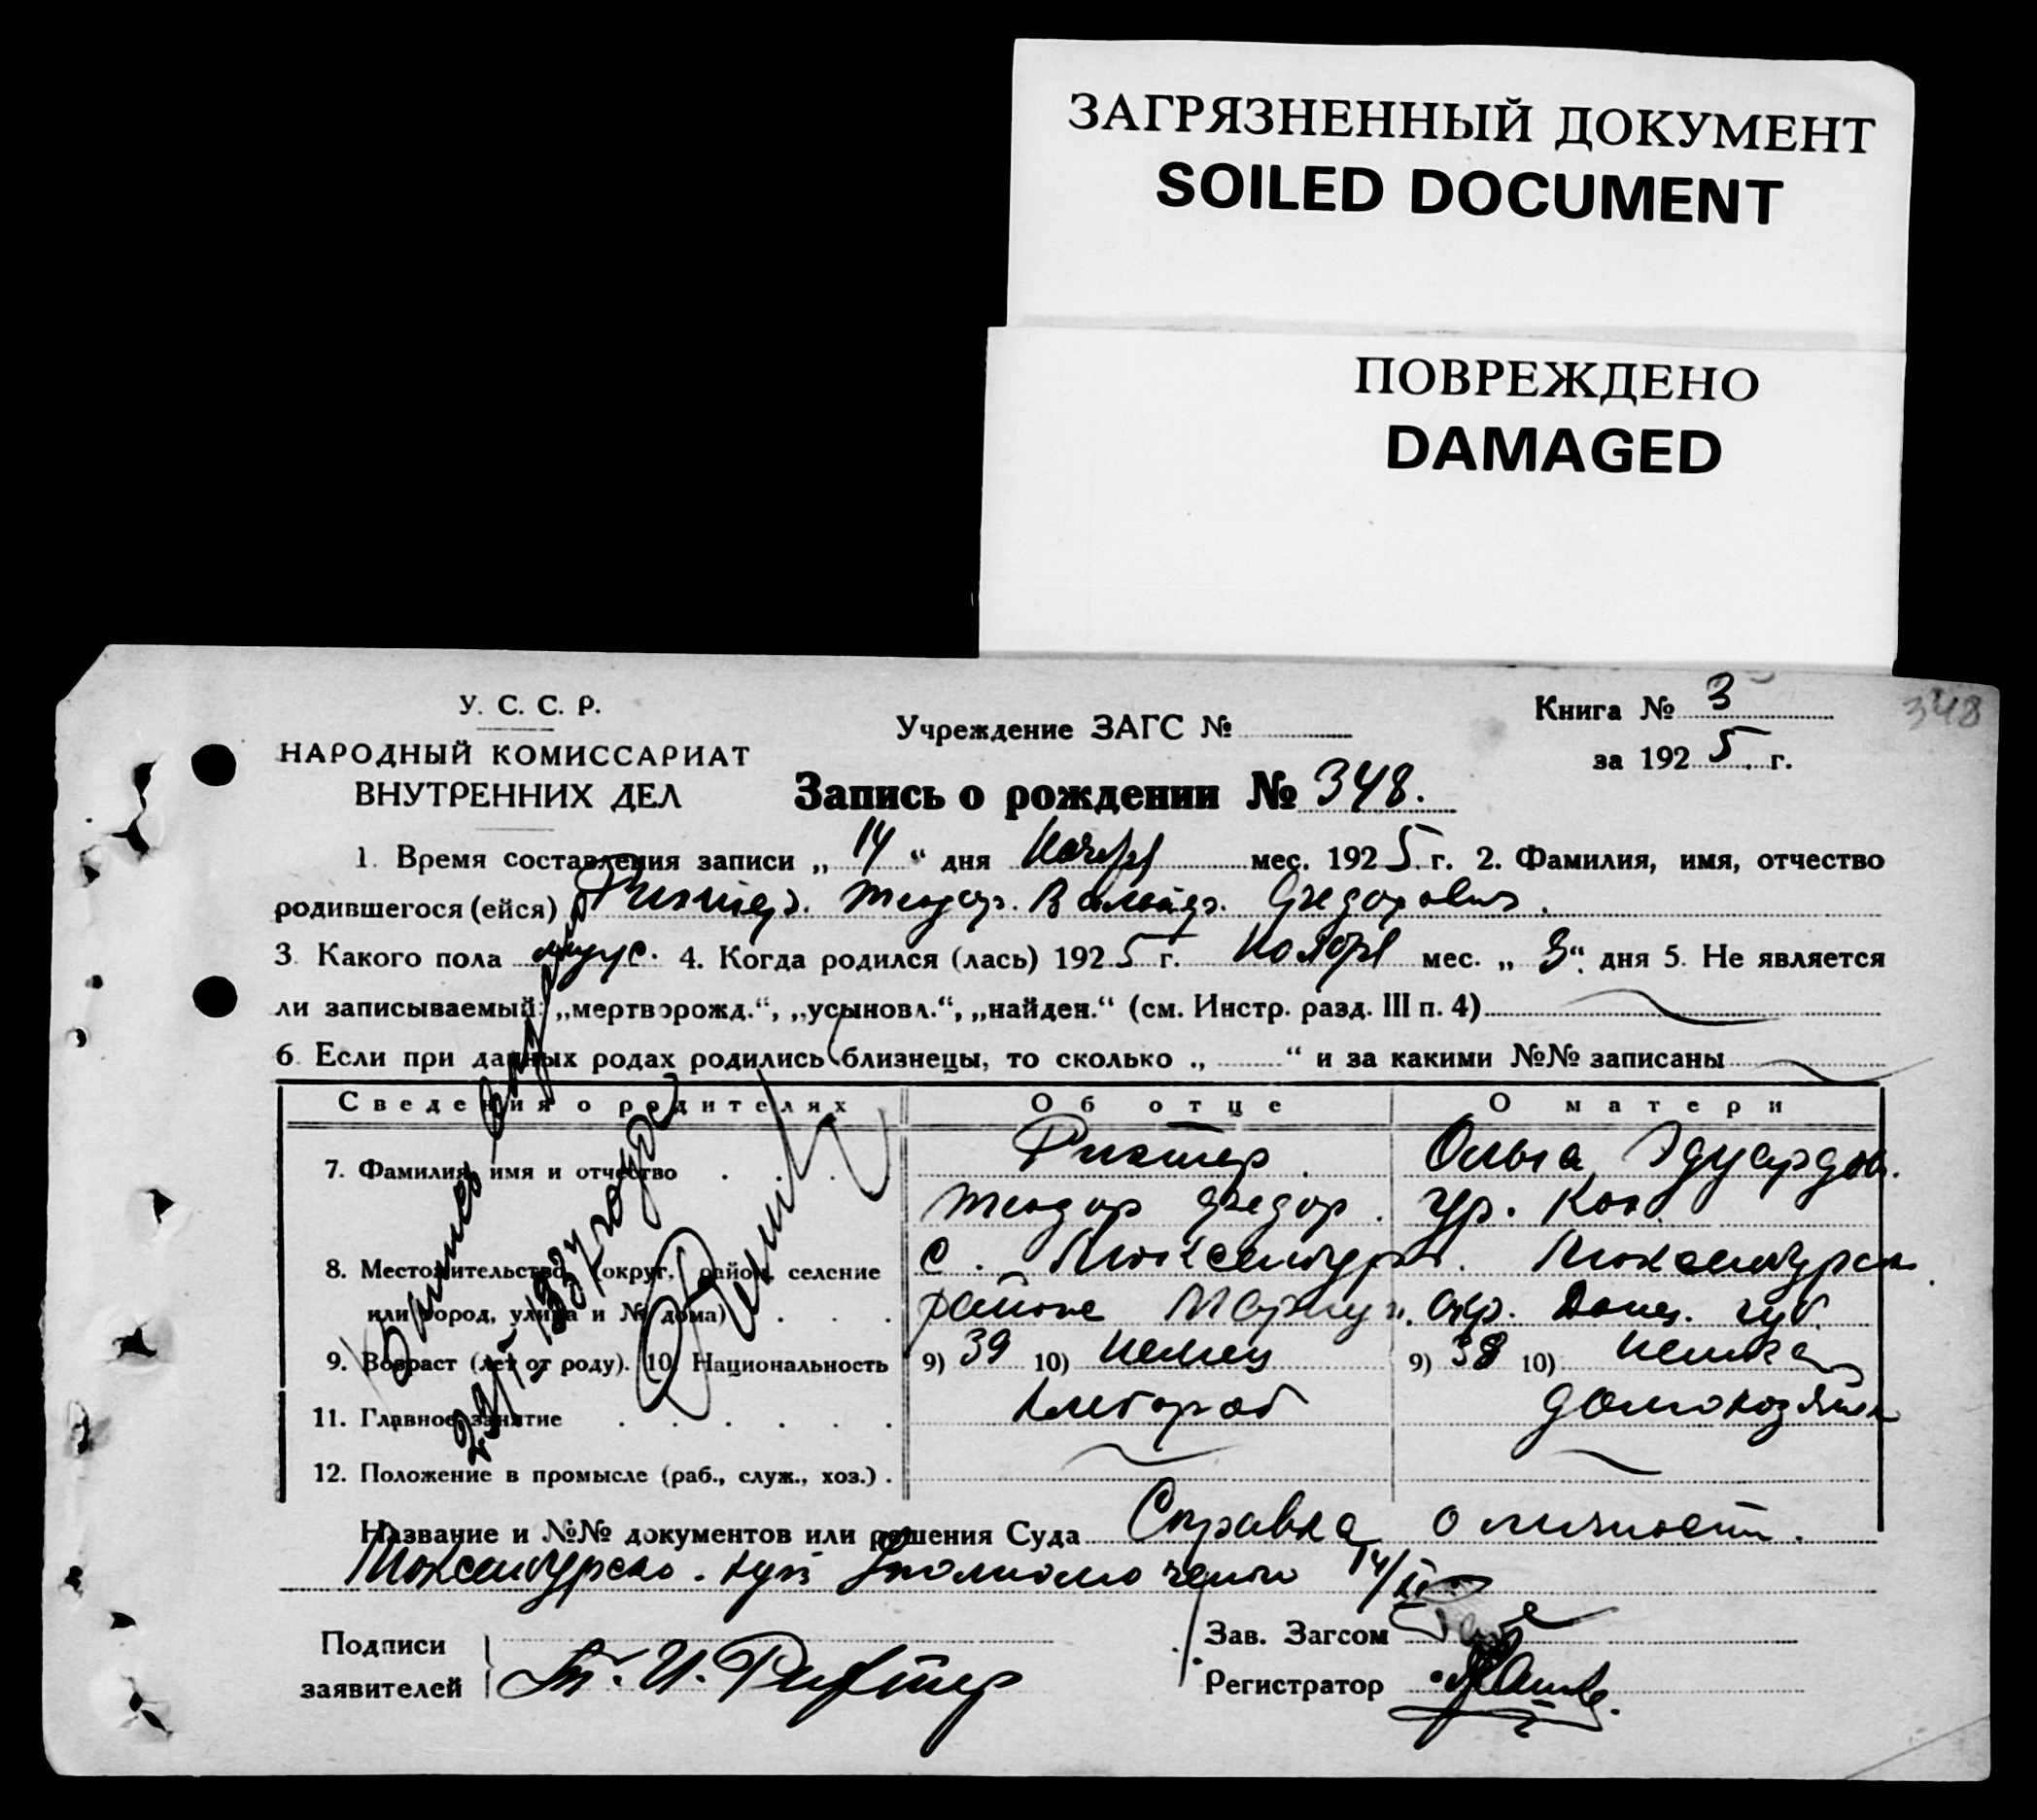 ЗАГРЯЗНЕННЫЙ ДОКУМЕНТ
SOILED DOCUMENT
ПОВРЕЖДЕНО
DAMAGED
348
У. С. С. Р.
НАРОДНЫЙ КОМИССАРИАТ
ВНУТРЕННИХ ДЕЛ
Учреждение ЗАГС №
Книга № 3
за 1925 г.
Запись о рождении № 348.
1. Время составления записи „ 14 “ дня Ноября мес. 1925 г. 2. Фамилия, имя, отчество
родившегося (ейся) Рихтер. Теодор. Вальтер. Федорович.
3. Какого пола муж. 4. Когда родился (лась) 1925 г. Ноября мес. „ 3 “ дня 5. Не является
ли записываемый: „мертворожд.“, „усыновл.“, „найден.“ (см. Инстр. разд. III п. 4)
6. Если при данных родах родились близнецы, то сколько „ “ и за какими №№ записаны
Сведения о родителях Об отце О матери
7. Фамилия, имя и отчество Рихтер. Ольга Эдуардов.
Теодор Федор. ур. Кол.
8. Местожительство (округ, район, селение с. Люксембург. Люксембургск.
или город, улица и № дома) района Мариуп. окр. Донец. губ.
9. Возраст (лет от роду). 10. Национальность 9) 39 10) Немец 9) 38 10) немка
11. Главное занятие Хлебороб домохозяйка
12. Положение в промысле (раб., служ., хоз.)
Название и №№ документов или решения Суда Справка о личности.
Люксембургско. 14/XI
Подписи
заявителей Рихтер
Зав. Загсом
Регистратор
1937 года